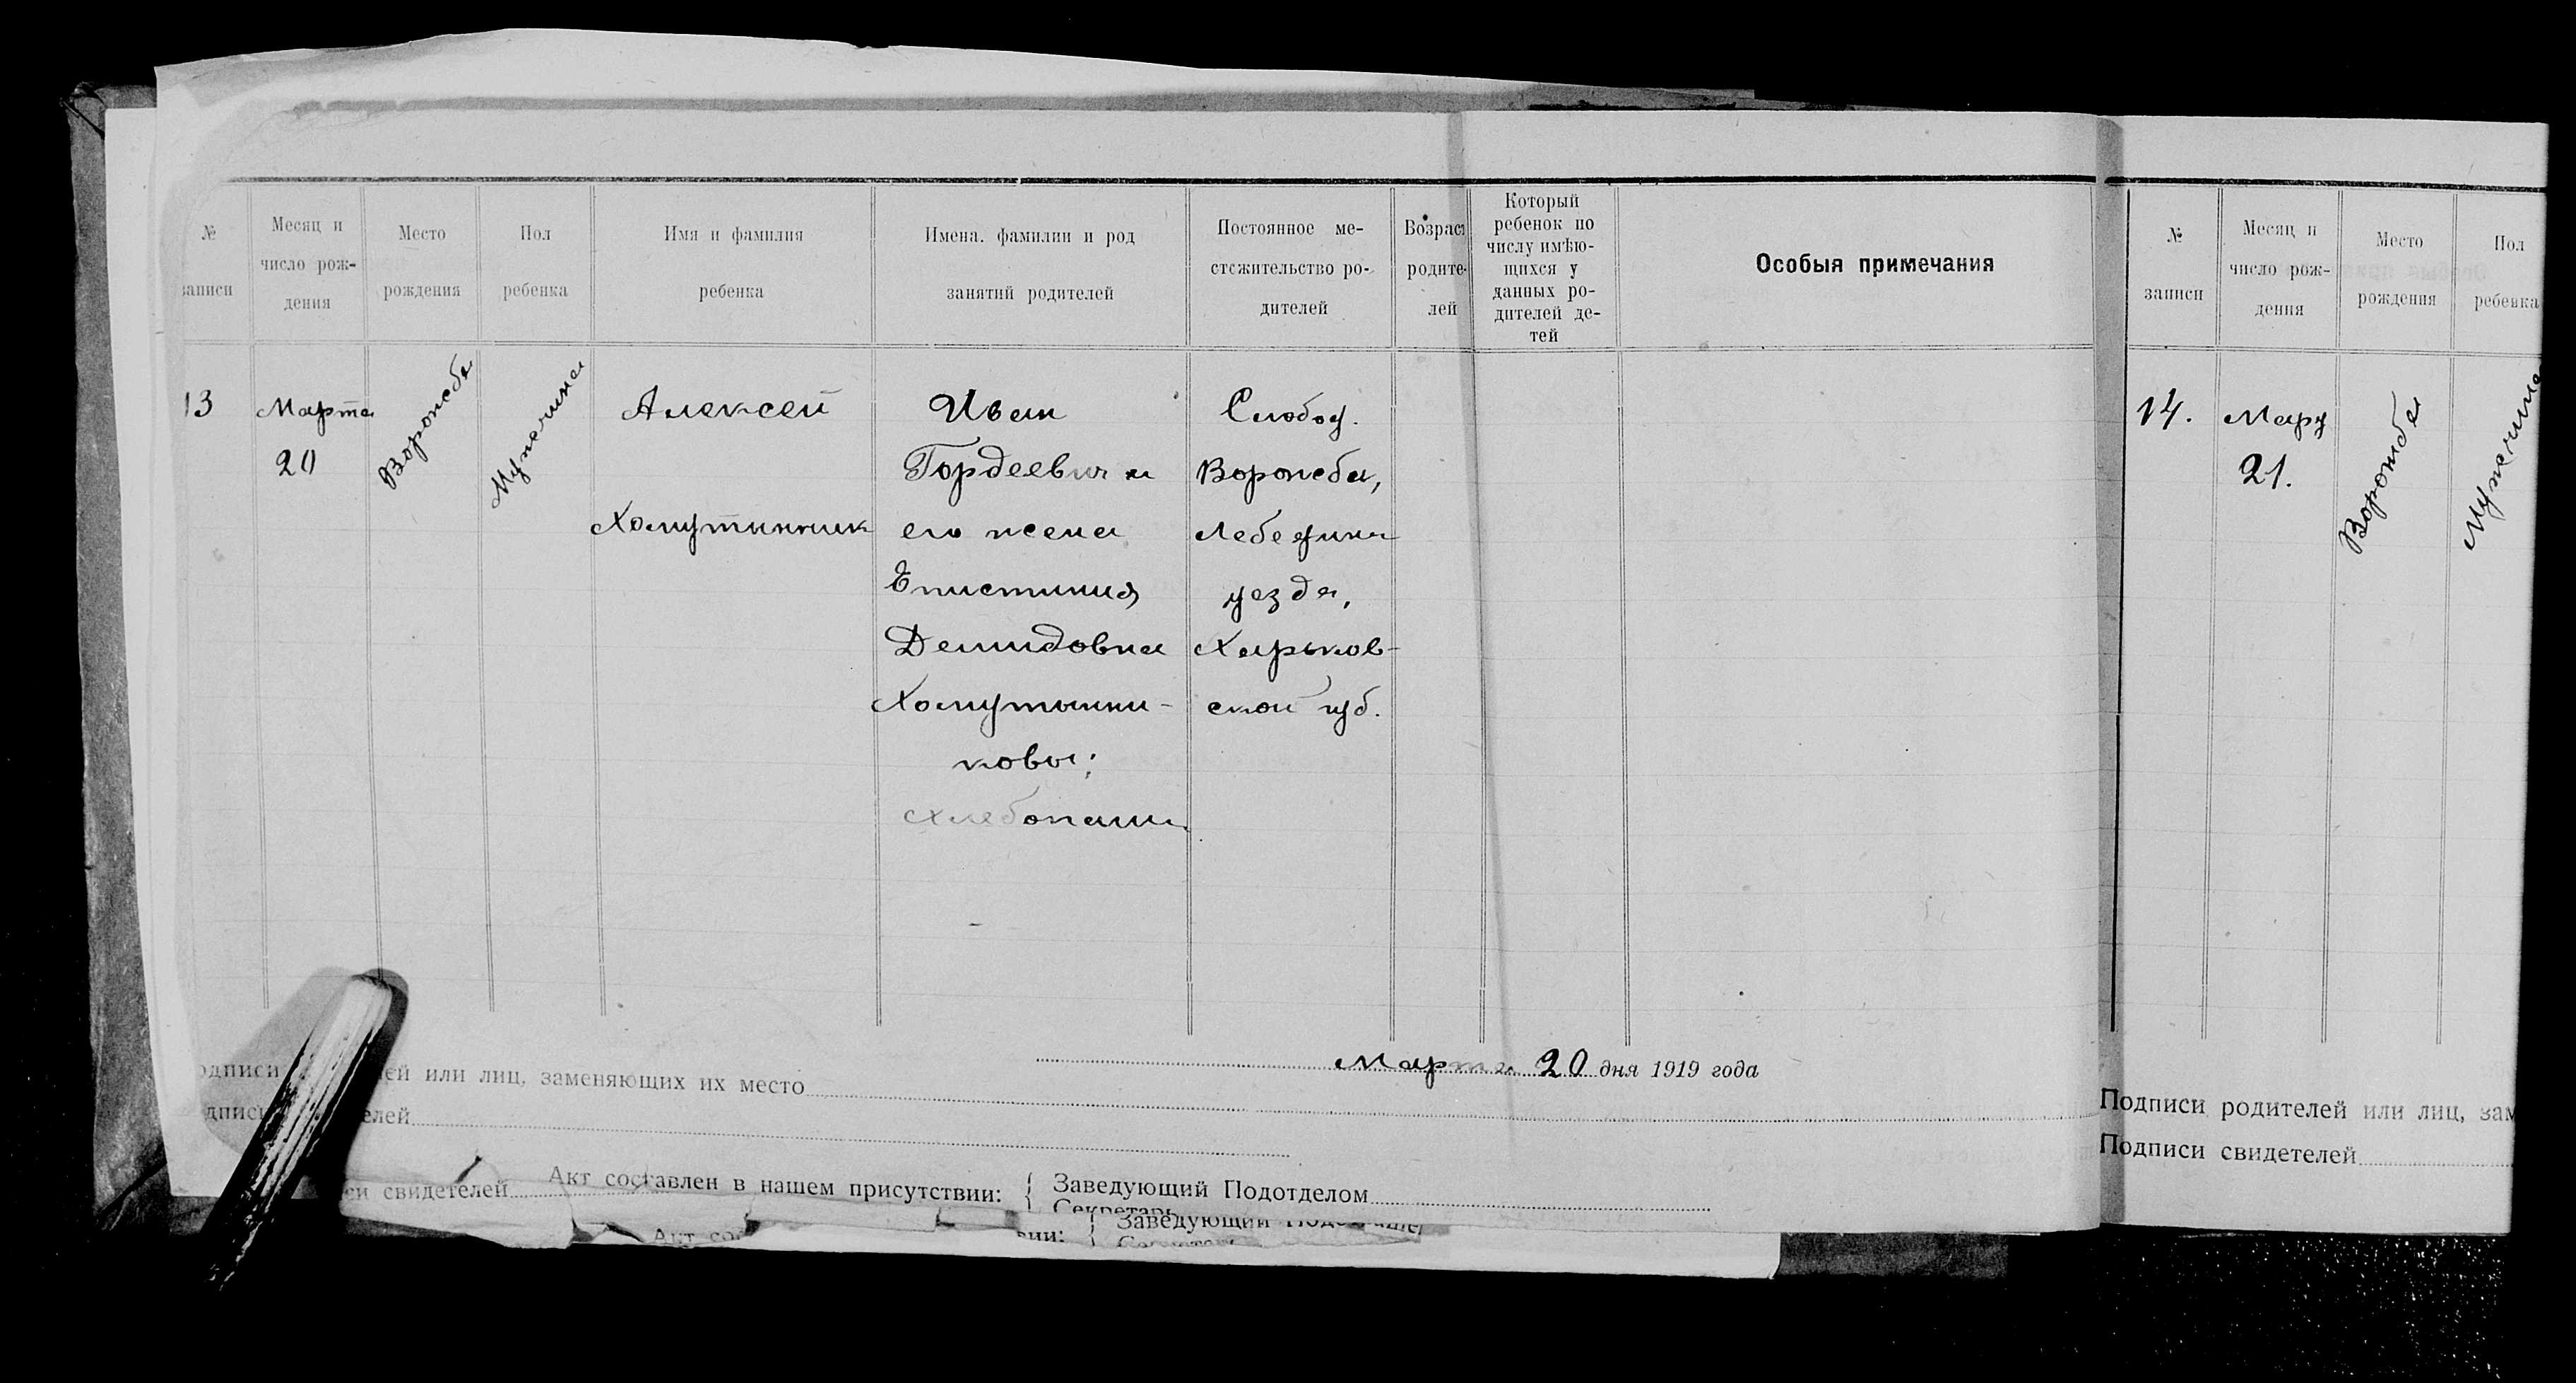 № записи
Месяц и число рождения
Место рождения
Пол ребенка
Имя и фамилия ребенка
Имена. фамилии и род занятий родителей
Постоянное местожительство родителей
Возраст родителей
Который ребенок по числу имѣющихся у данных родителей детей
Особыя примечания
13
Марта
20
Ворожба
Мужчина
Алексей
Холмутинник
Иван
Гордеевич и
его жена
Епистиния
Демидовна
Холмутынни-
ковы;
хлебопашц.
Слобод.
Ворожба,
Лебедин
уезда,
Харьков-
ской губ.
Марта 20 дня 1919 года
или лиц, заменяющих их место
Акт составлен в нашем присутствии: { Заведующий Подотделом
Секретарь
си свидетелей
Заведующий
№ записи
Месяц и число рождения
Место рождения
Пол ребенка
14.
Мар
21.
Ворожба
Мужчина
Подписи родителей или лиц, зам
Подписи свидетелей